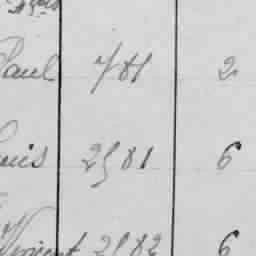 Paul 781 2
Louis 2581 6
Vincent 2582 6